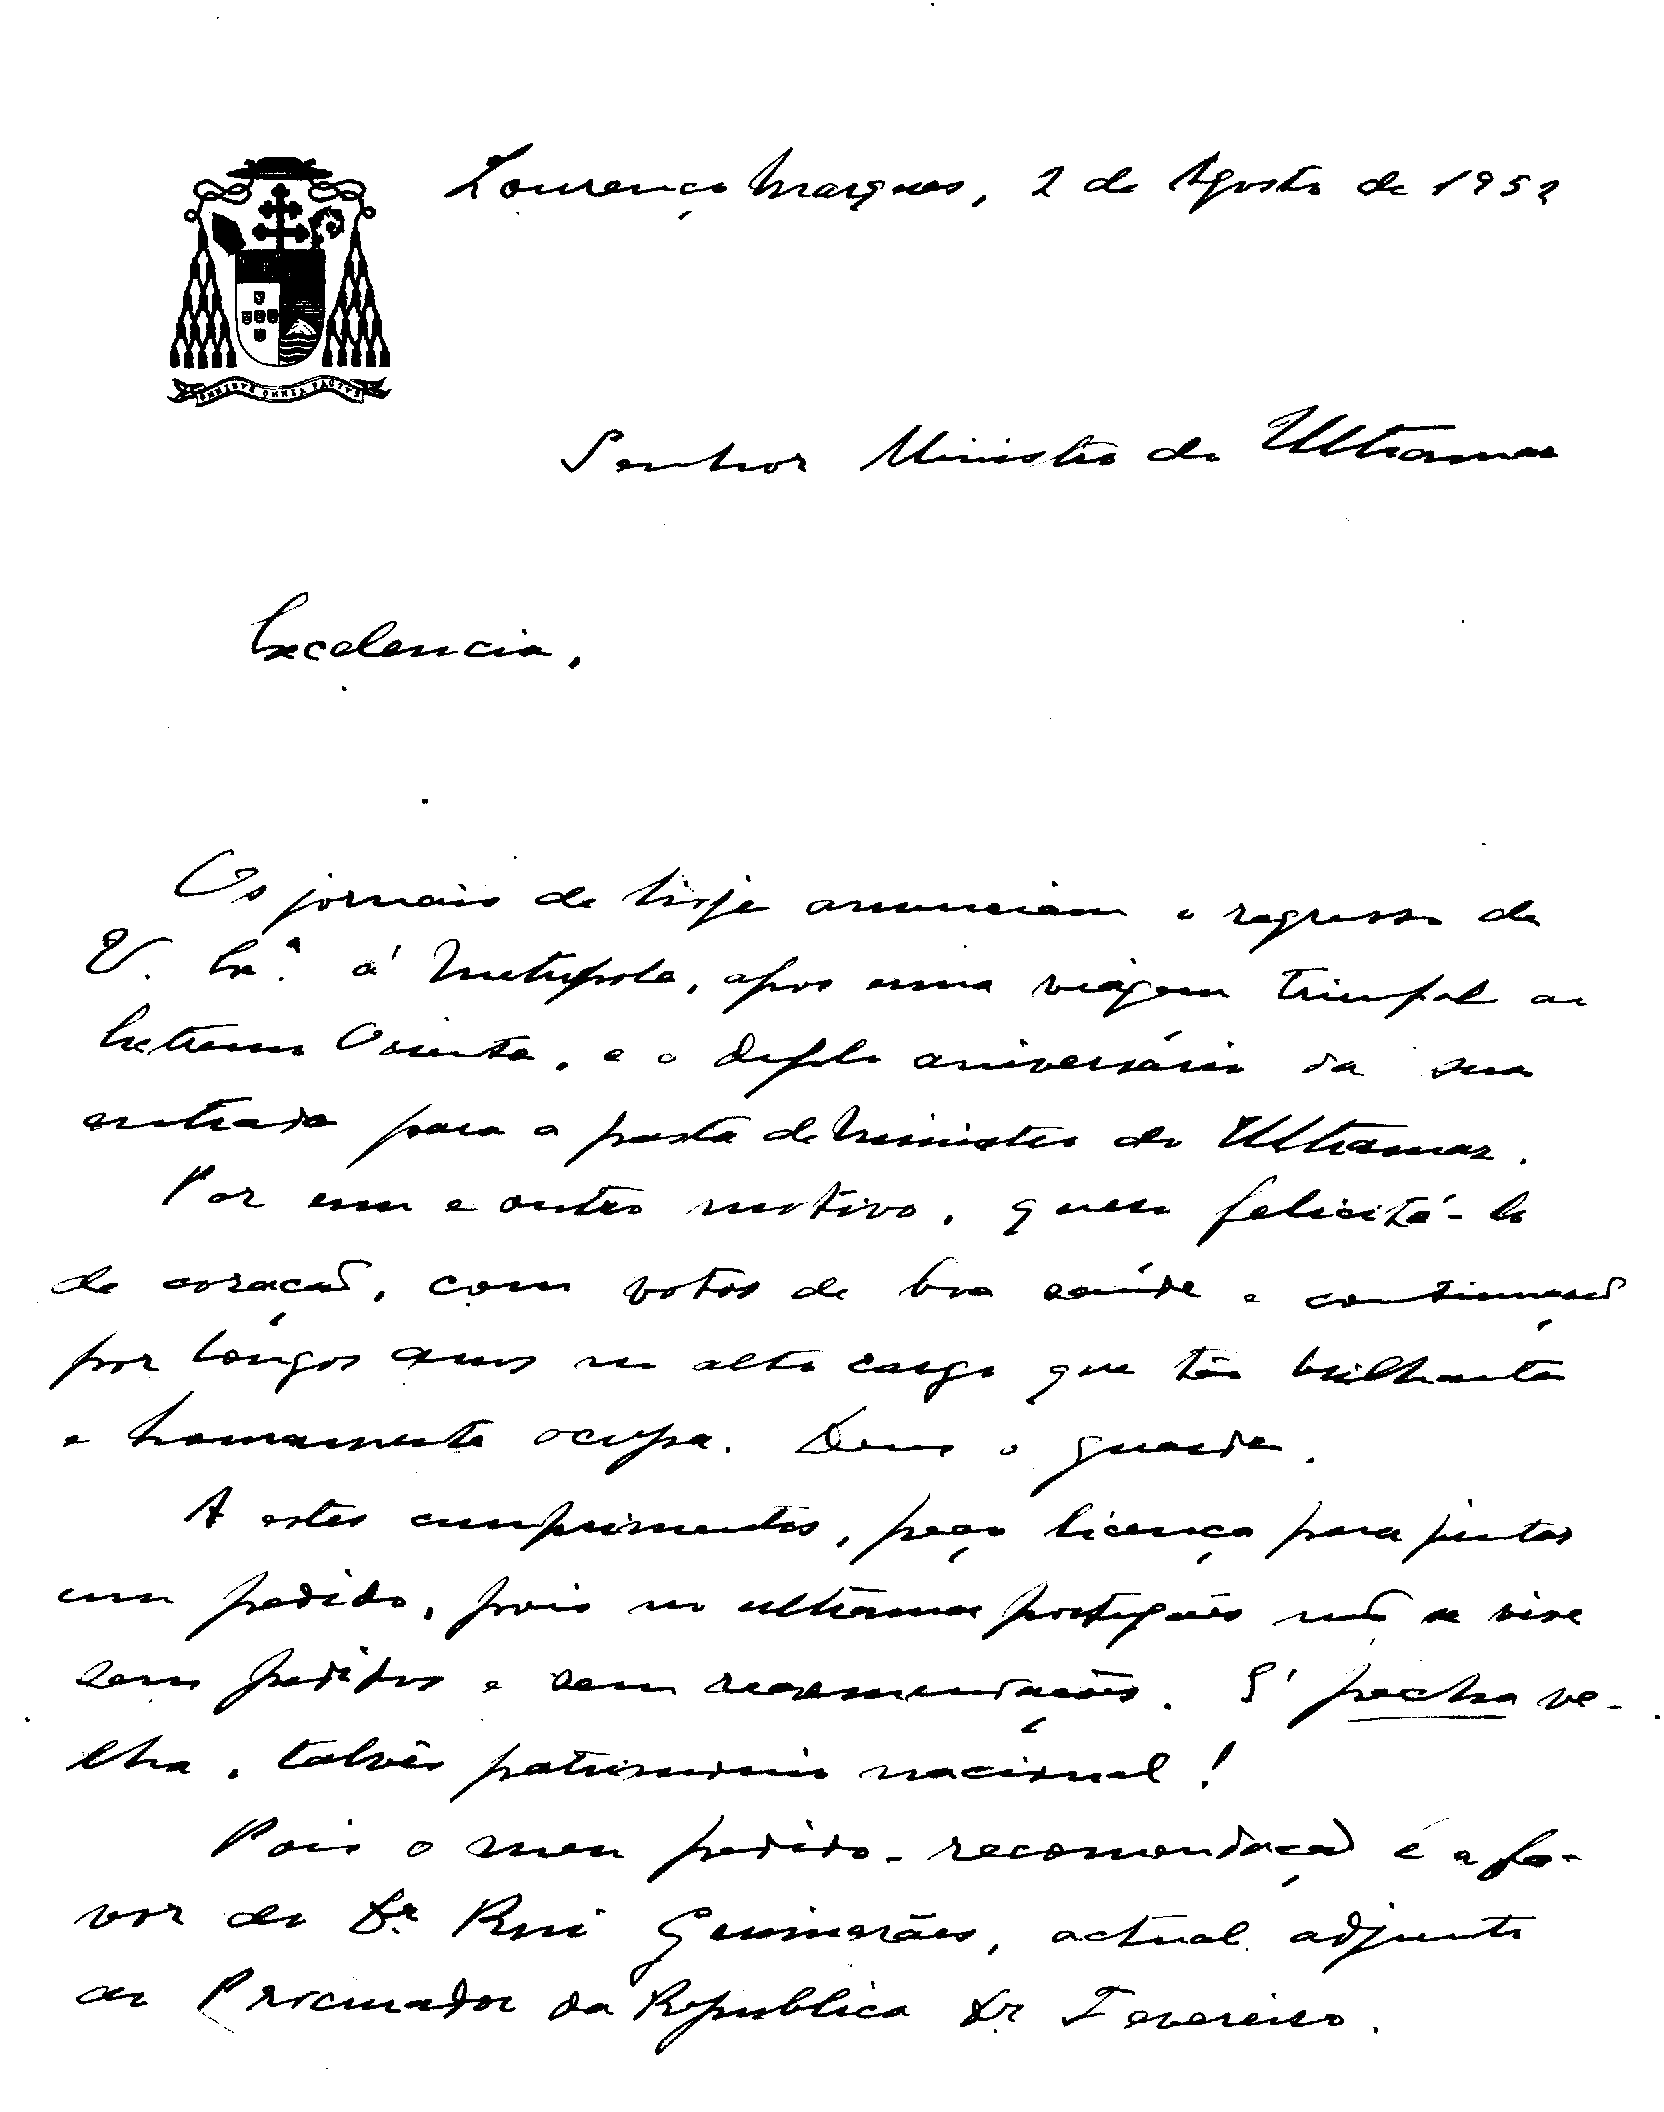 Lourenço Marques, 2 de Agosto de 1952
Senhor Ministro do Ultramar
Excelencia,
Os jornais de hoje anunciam o regresso de
V. Exª. á Metropole, apos uma viagem triunfal ao
Extremo Oriente, e o duplo aniversário da sua
entrada para a pasta de Ministro do Ultramar.
Por um e outro motivo, quero felicitá-lo
de coração, com votos de boa saúde e continuação
por longos anos no alto cargo que tão brilhante
e humanamente ocupa. Deus o guarde.
A estes cumprimentos, peço licença para juntar
um pedido, pois no ultramar português não se vive
sem pedidos e sem recomendações. É pecha ve-
lha, talvês patrimonio nacional!
Pois o meu pedido-recomendação é a fa-
vor do Dr. Rui Guimarães, actual adjunto
ao Procurador da Republica Dr Fevereiro.